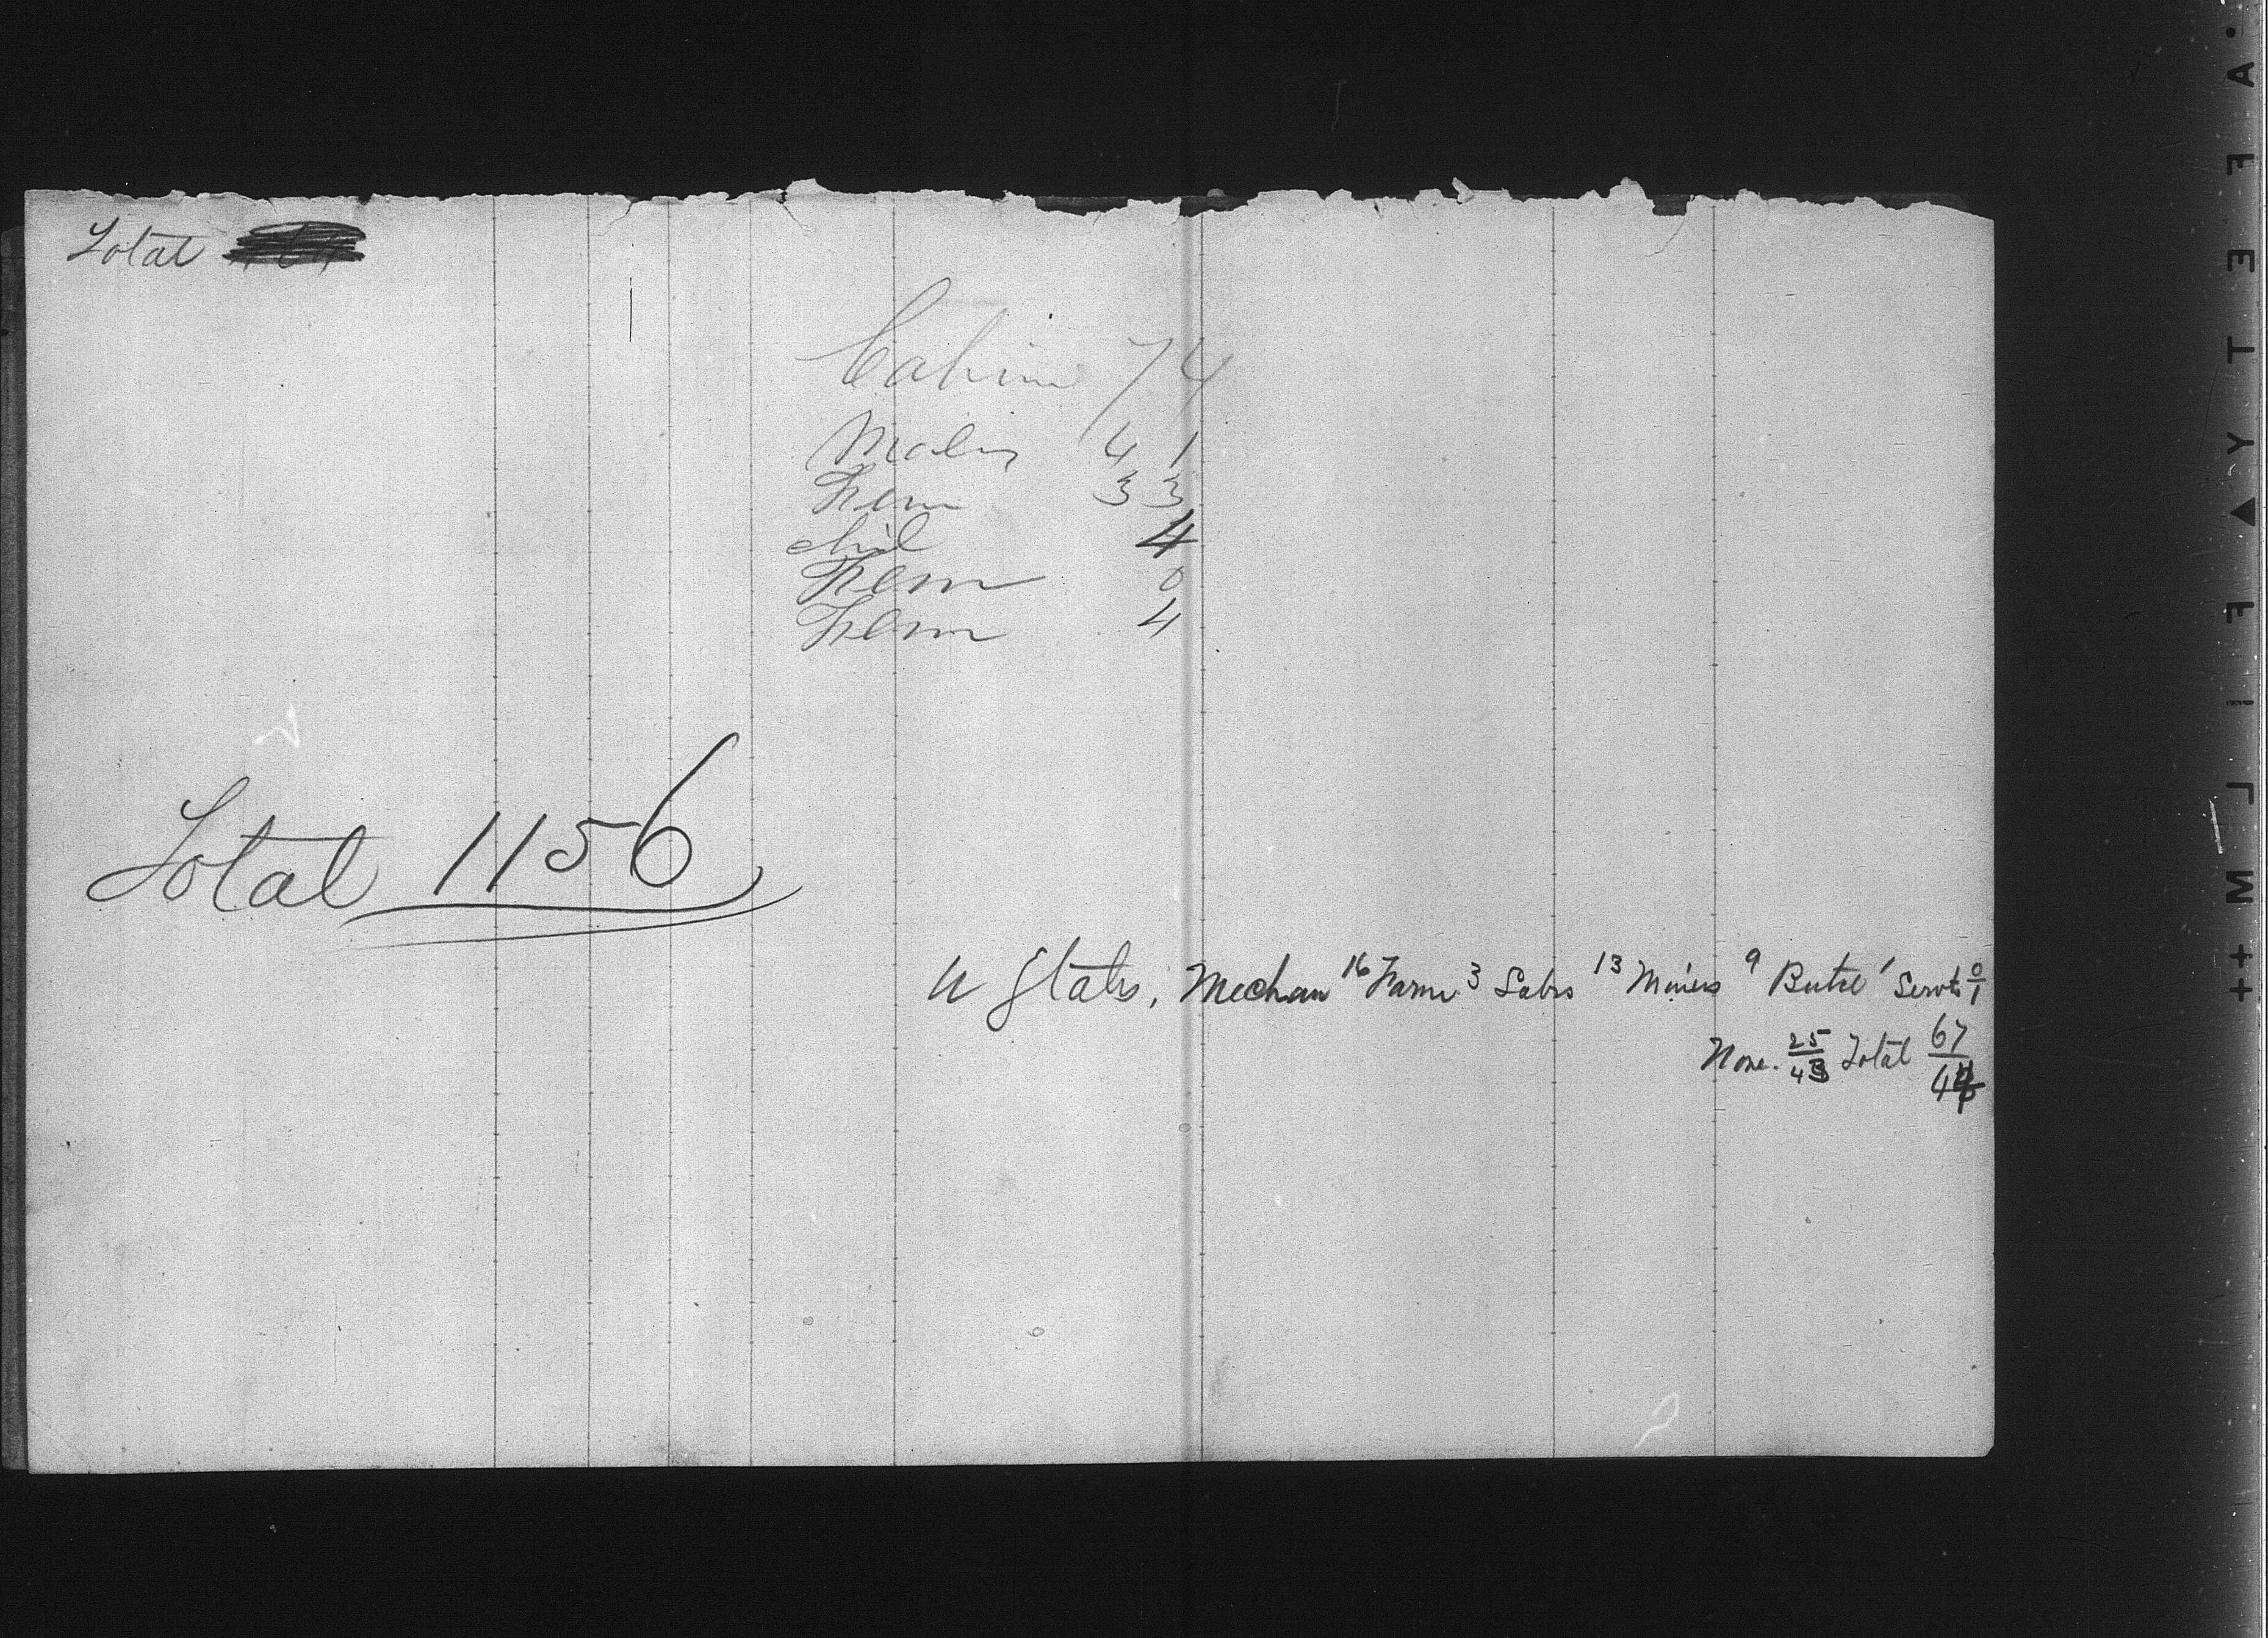 Total
Cabin 74
Males 41
Fem 33
chil 4
Fem 0
Fem 4
Total 1156
U States, Mechan 16 Farm 3 Labs 13 Miners 9 Butch 1 Servts 0/1
None. 25/43 Total 67/44
SAFETY ▲ FILM ++